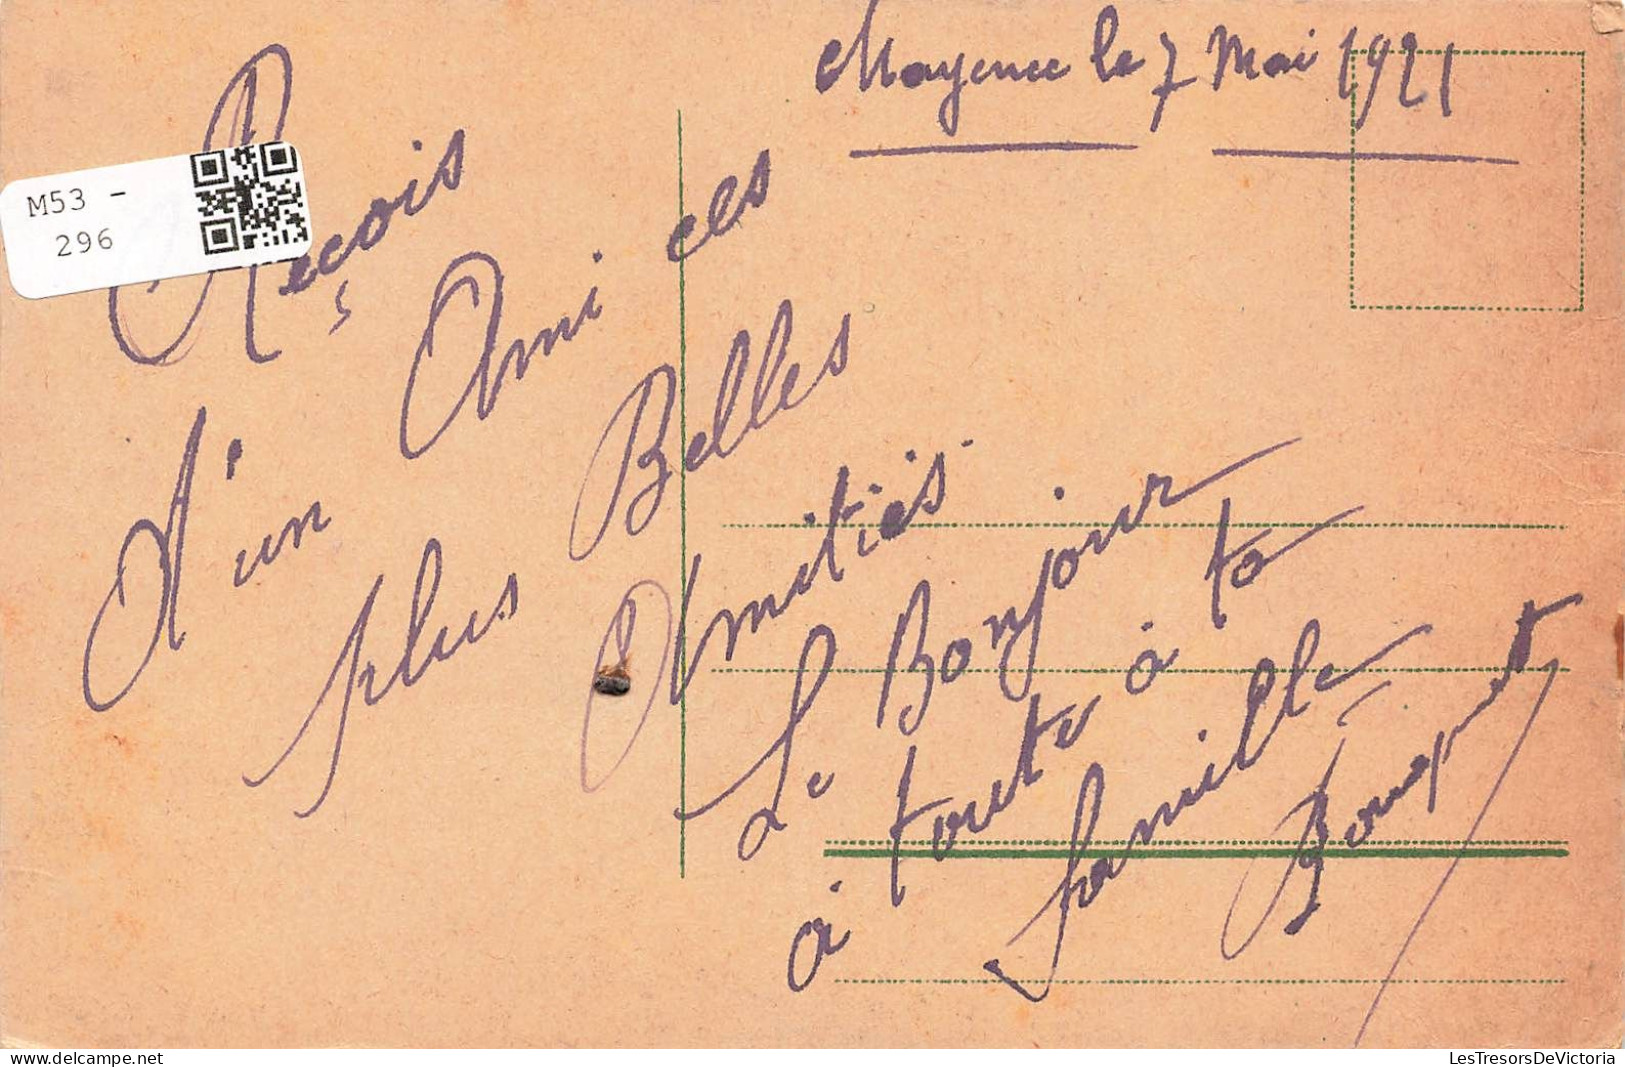 Mayence le 7 Mai 1921
M53 -
296
Reçois
d'un Ami ces
plus Belles
Amitiés
Le Bonjour
à toute à ta
famille
LesTresorsDeVictoria